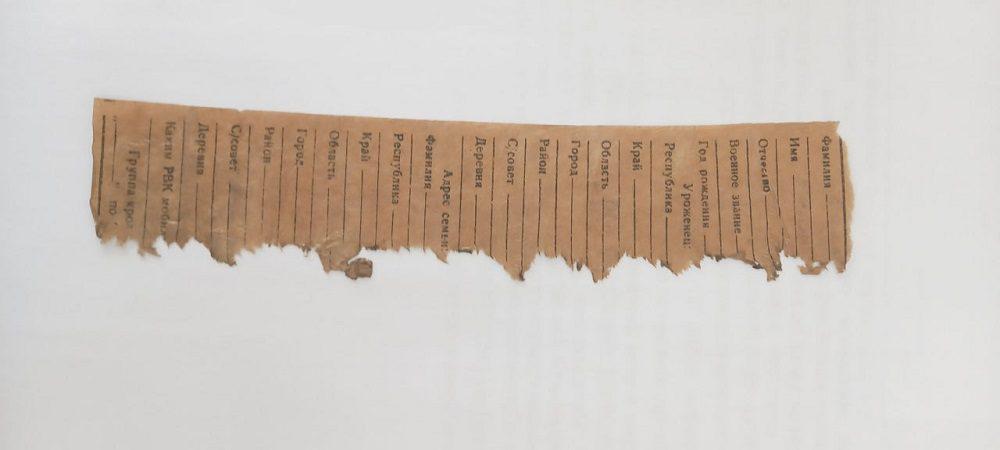 Фамилия
Имя
Отчество
Военное звание
Год рождения
Уроженец:
Республика
Край
Область
Город
Район
С/совет
Деревня
Адрес семьи:
Фамилия
Республика
Край
Область
Город
Район
С/совет
Деревня
Каким РВК моби
Группа кров
" по